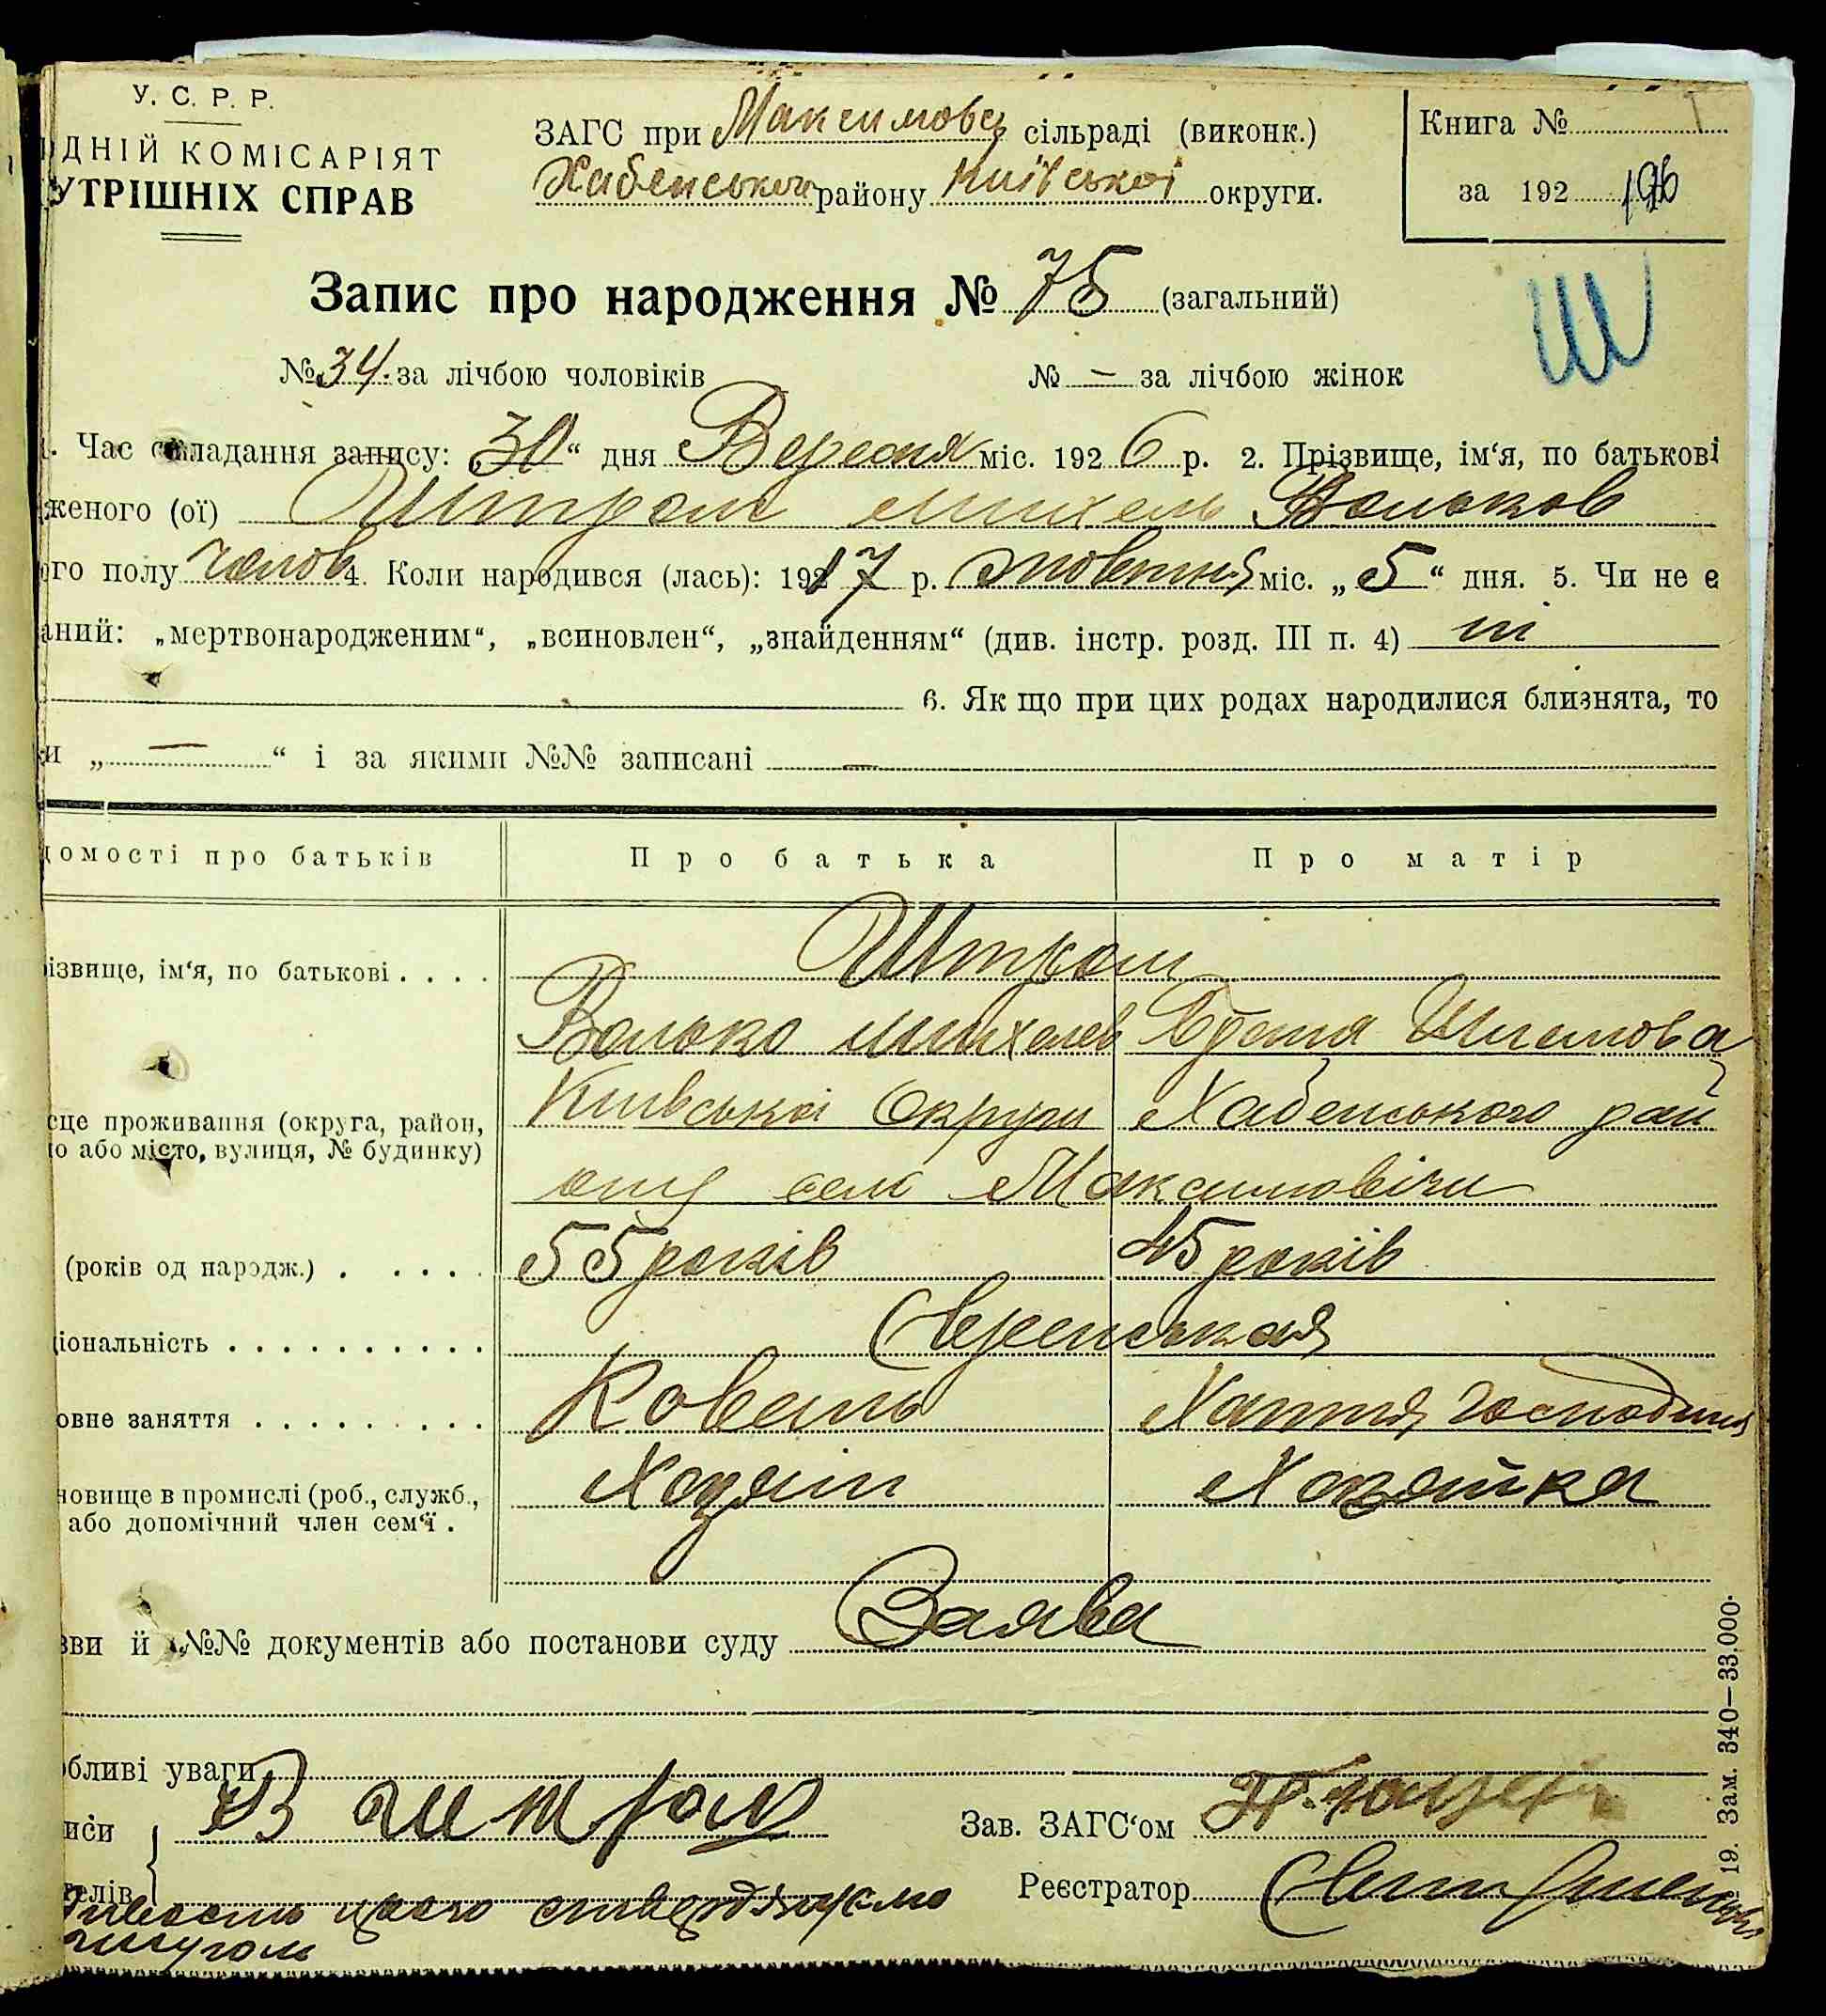 У. С. Р. Р.
ДНІЙ КОМІСАРІЯТ
УТРІШНІХ СПРАВ
ЗАГС при Максимовец сільраді (виконк.)
Хабенського району Київської округи.
Книга №
за 192
Запис про народження № 75 (загальний)
№ 34. за лічбою чоловіків № — за лічбою жінок
Час складання запису: „30“ дня Вересня міс. 1926 р. 2. Прізвище, ім‘я, по батькові
женого (ої) Штрам Михель Вольков
го полу челов 4. Коли народився (лась): 1917 р. жовтня міс. „5“ дня. 5. Чи не є
аний: „мертвонародженим“, „всиновлен“, „знайденням“ (див. інстр. розд. III п. 4) ні
6. Як що при цих родах народилися близнята, то
и „—“ і за якими №№ записані —
домості про батьків Про батька Про матір
ізвище, ім‘я, по батькові . . . . Штрам
Волько Михелев Шлемова
сце проживання (округа, район,
о або місто, вулиця, № будинку)
Київської Округи Хабенського рай
ону село Максимовічи
(років од народж.) . . . . . 55 років 45 років
ціональність . . . . . . . . . . . Єврейськая
овне заняття . . . . . . . . . Коваль Хатня господиня
новище в промислі (роб., служб.,
або допомічний член сем‘ї .
Хазяін Хазяйка
зви й №№ документів або постанови суду Заява
обливі уваги
иси В Штрам Зав. ЗАГС‘ом
телів Реєстратор
цього стверджуємо
19. Зам. 340—33.000.